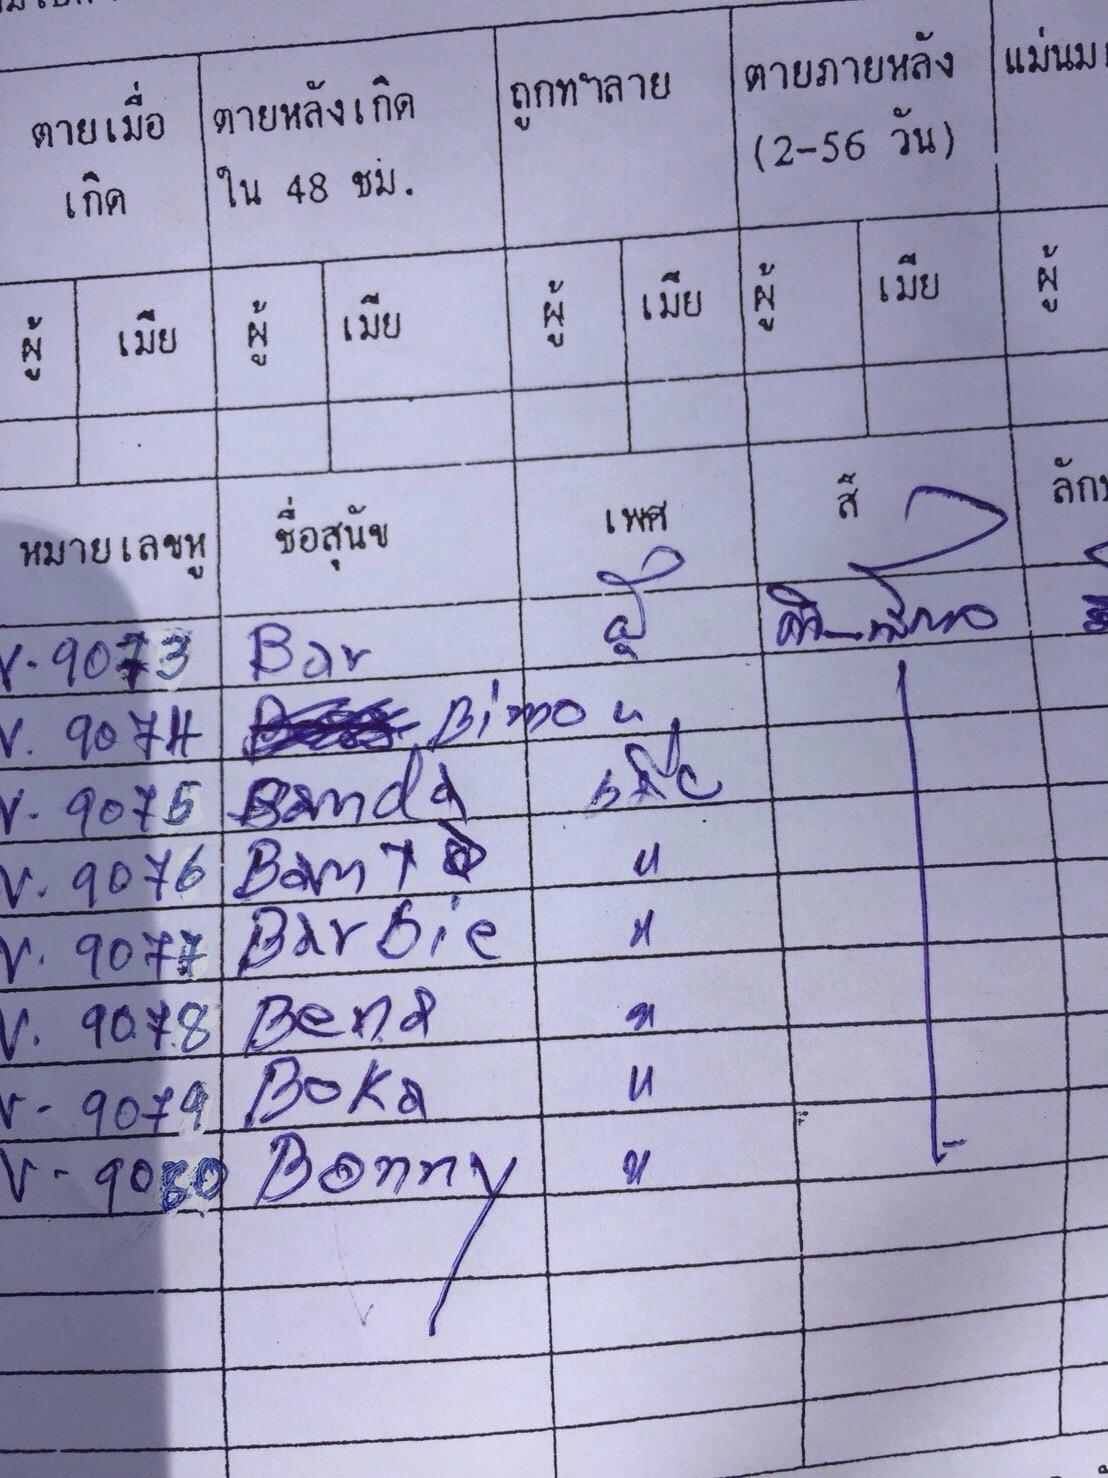 ตายเมื่อ ตายหลังเกิด ถูกทำลาย ตายภายหลัง แม่นม
เกิด ใน 48 ชม. (2-56 วัน)
ผู้ เมีย ผู้ เมีย ผู้ เมีย ผู้ เมีย ผู้
หมายเลขหู ชื่อสุนัข เพศ สี
V. 9073 Bar ผู้
V. 9074 Bimo "
V. 9075 Banda เมีย
V. 9076 "
V. 9077 Barbie "
V. 9078 Bena "
V. 9079 Boka "
V. 9080 Bonny "